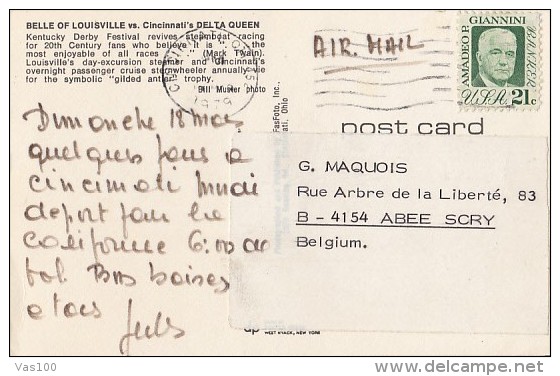 BELLE OF LOUISVILLE vs. Cincinnati's DELTA QUEEN
Kentucky Derby Festival revives steamboat racing
for 20th Century fans who believe it is "the
most enjoyable of all races" (Mark Twain).
Louisville's day-excursion steamer and Cincinnati's
overnight passenger cruise sternwheeler annually vie
for the symbolic "gilded antler" trophy.
Bill Muster photo
1979
AIR MAIL
AMADEO P. GIANNINI
BANKER
U.S.A. 21c
FasFoto, Inc.,
ati, Ohio
post card
Dimanche 18 Mars
quelques jours a
cincinnati
depart pour la
Californie 6:00
Bons baisers
a tous
Jules
G. MAQUOIS
Rue Arbre de la Liberté, 83
B - 4154 ABEE SCRY
Belgium.
WEST NYACK, NEW YORK
Vas100
delcampe.net